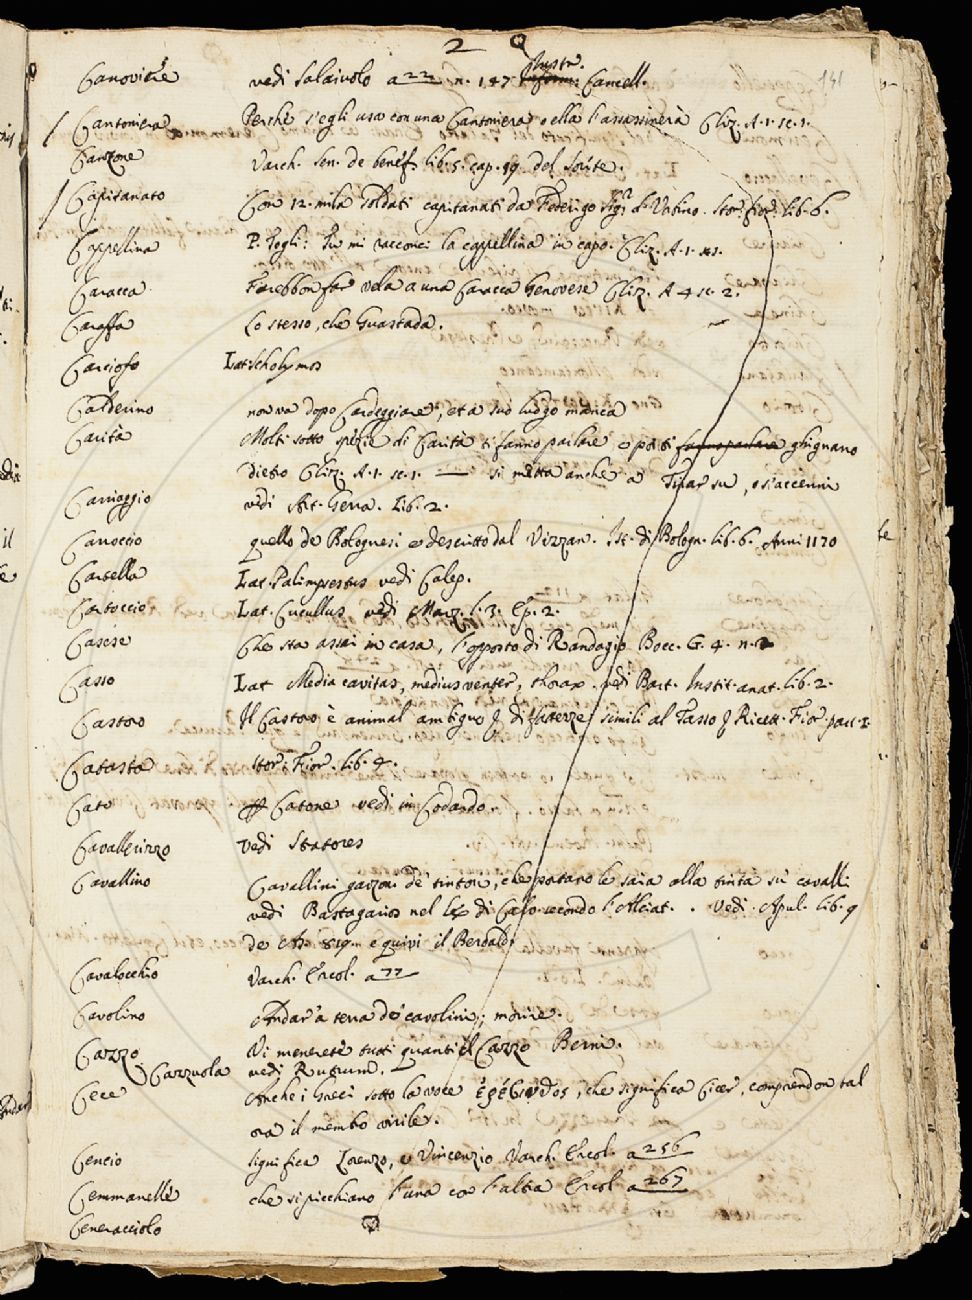 2
141
Canoviere vedi Salaiuolo a 22 n. 147 Cancell.
Cantoniera Perche s'egli usa con una Cantoniera o ella l'assassinerà Cliz. A. 1. sc. 1.
Canzone Varch. Sen. de benef. lib. 5. cap. 19. del Soùte.
Capitanato Con 12. mila soldati capitanati da Federigo Sigr. d'Urbino. Stor. fior. lib. 6.
Cappellina P. Togli: Tu mi racconci la cappellina in capo. Cliz. A. 1. sc. 1.
Caracca Farebbon far vela a una Caracca Genovese Cliz. A 4 sc. 2.
Caraffa Lo stesso, che Guastada.
Carciofo Lat: Scholymos
Calderino non va dopo Cardeggiare, et a suo luogo manca
Carità Molti sotto spezie di Carità ti fanno parlare e poi ti fanno parlare ghignano
dietro Cliz. A. 1. sc. 1. — si metta anche a Tirar su, o s'accenni
Carriaggio vedi Art. Gerra. Lib. 2.
Carroccio quello de Bolognesi e descritto dal Vizzan. Ist. di Bologn. lib. 6. Anni 1170
Cartella Lat. Palimpsestus vedi Calep.
Cartoccio Lat. Cucullus vedi Marz. l. 3. Ep. 2.
Casese Che sta assai in casa, l'opposto di Randagio Bocc. G. 4. n. 2
Casso Lat Media cavitas, medius venter, thorax. vedi Bart. Instit. anat. lib. 2.
Castoro Il Castoro è animal ambiguo di fattezze simili al Tasso Ricett. Fior. par. 1.
Catasta Stor: Fior. lib. 4.
Cato Catone vedi in Codardo
Cavallerizzo vedi Statores
Cavallino Cavallini garzoni de tintori, che portano le saia alla tinta su cavalli
vedi Bastagarios nel Lex di Calo. secondo l'Alciat. . Vedi. Apul. lib. 9
de As. 819. e quivi il Beroald:
Cavalocchio Varch. Ercol. a 77
Cavolino Andar' a terra de' cavolini; morire.
Cazzo Vi menerete tutti quanti il Cazzo Berni.
Cazzuola vedi Rutrum.
Cece Anche i Greci sotto la voce ἐρέβινθος, che significa Cicer, comprendon tal
ora il membro virile.
Cencio significa Lorenzo, o Vincenzio Varch. Ercol. a 256
Cemmanelle che si picchiano l'una con l'altra Ercol a 267
Ceneracciolo